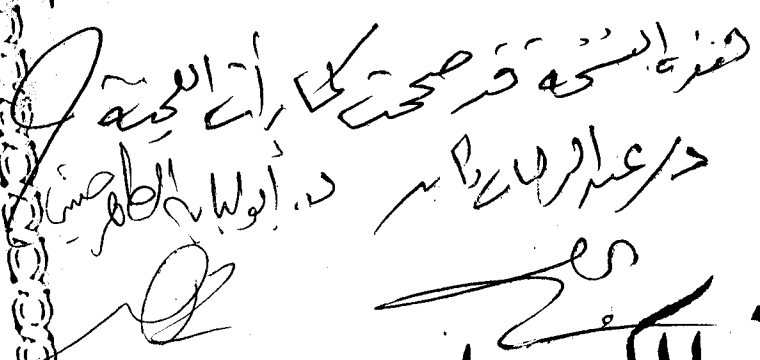 هذه النسخة قد صححت كما رأت اللجنة
د. عبد الرحمان د. أبو لبابة الطاهر حسين